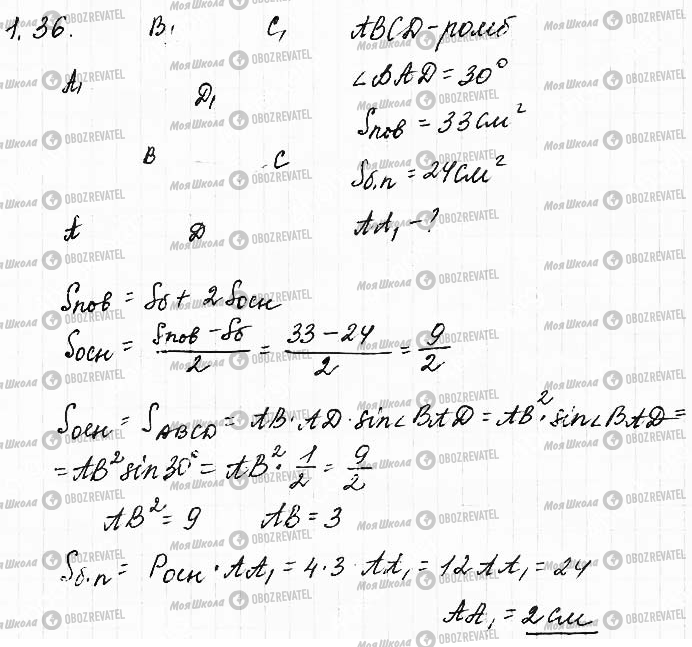 1.36. B₁ C₁ ABCD - ромб
A₁ D₁ ∠BAD = 30°
Sпов = 33 см²
B C Sб.п = 24 см²
A D AA₁ - ?
Sпов = Sб + 2Sосн
Sосн = (Sпов - Sб)/2 = (33 - 24)/2 = 9/2
Sосн = SABCD = AB · AD · sin∠BAD = AB² · sin∠BAD =
= AB² sin30° = AB² · 1/2 = 9/2
AB² = 9 AB = 3
Sб.п = Pосн · AA₁ = 4 · 3 · AA₁ = 12 AA₁ = 24
AA₁ = 2 см
МояШкола OBOZREVATEL